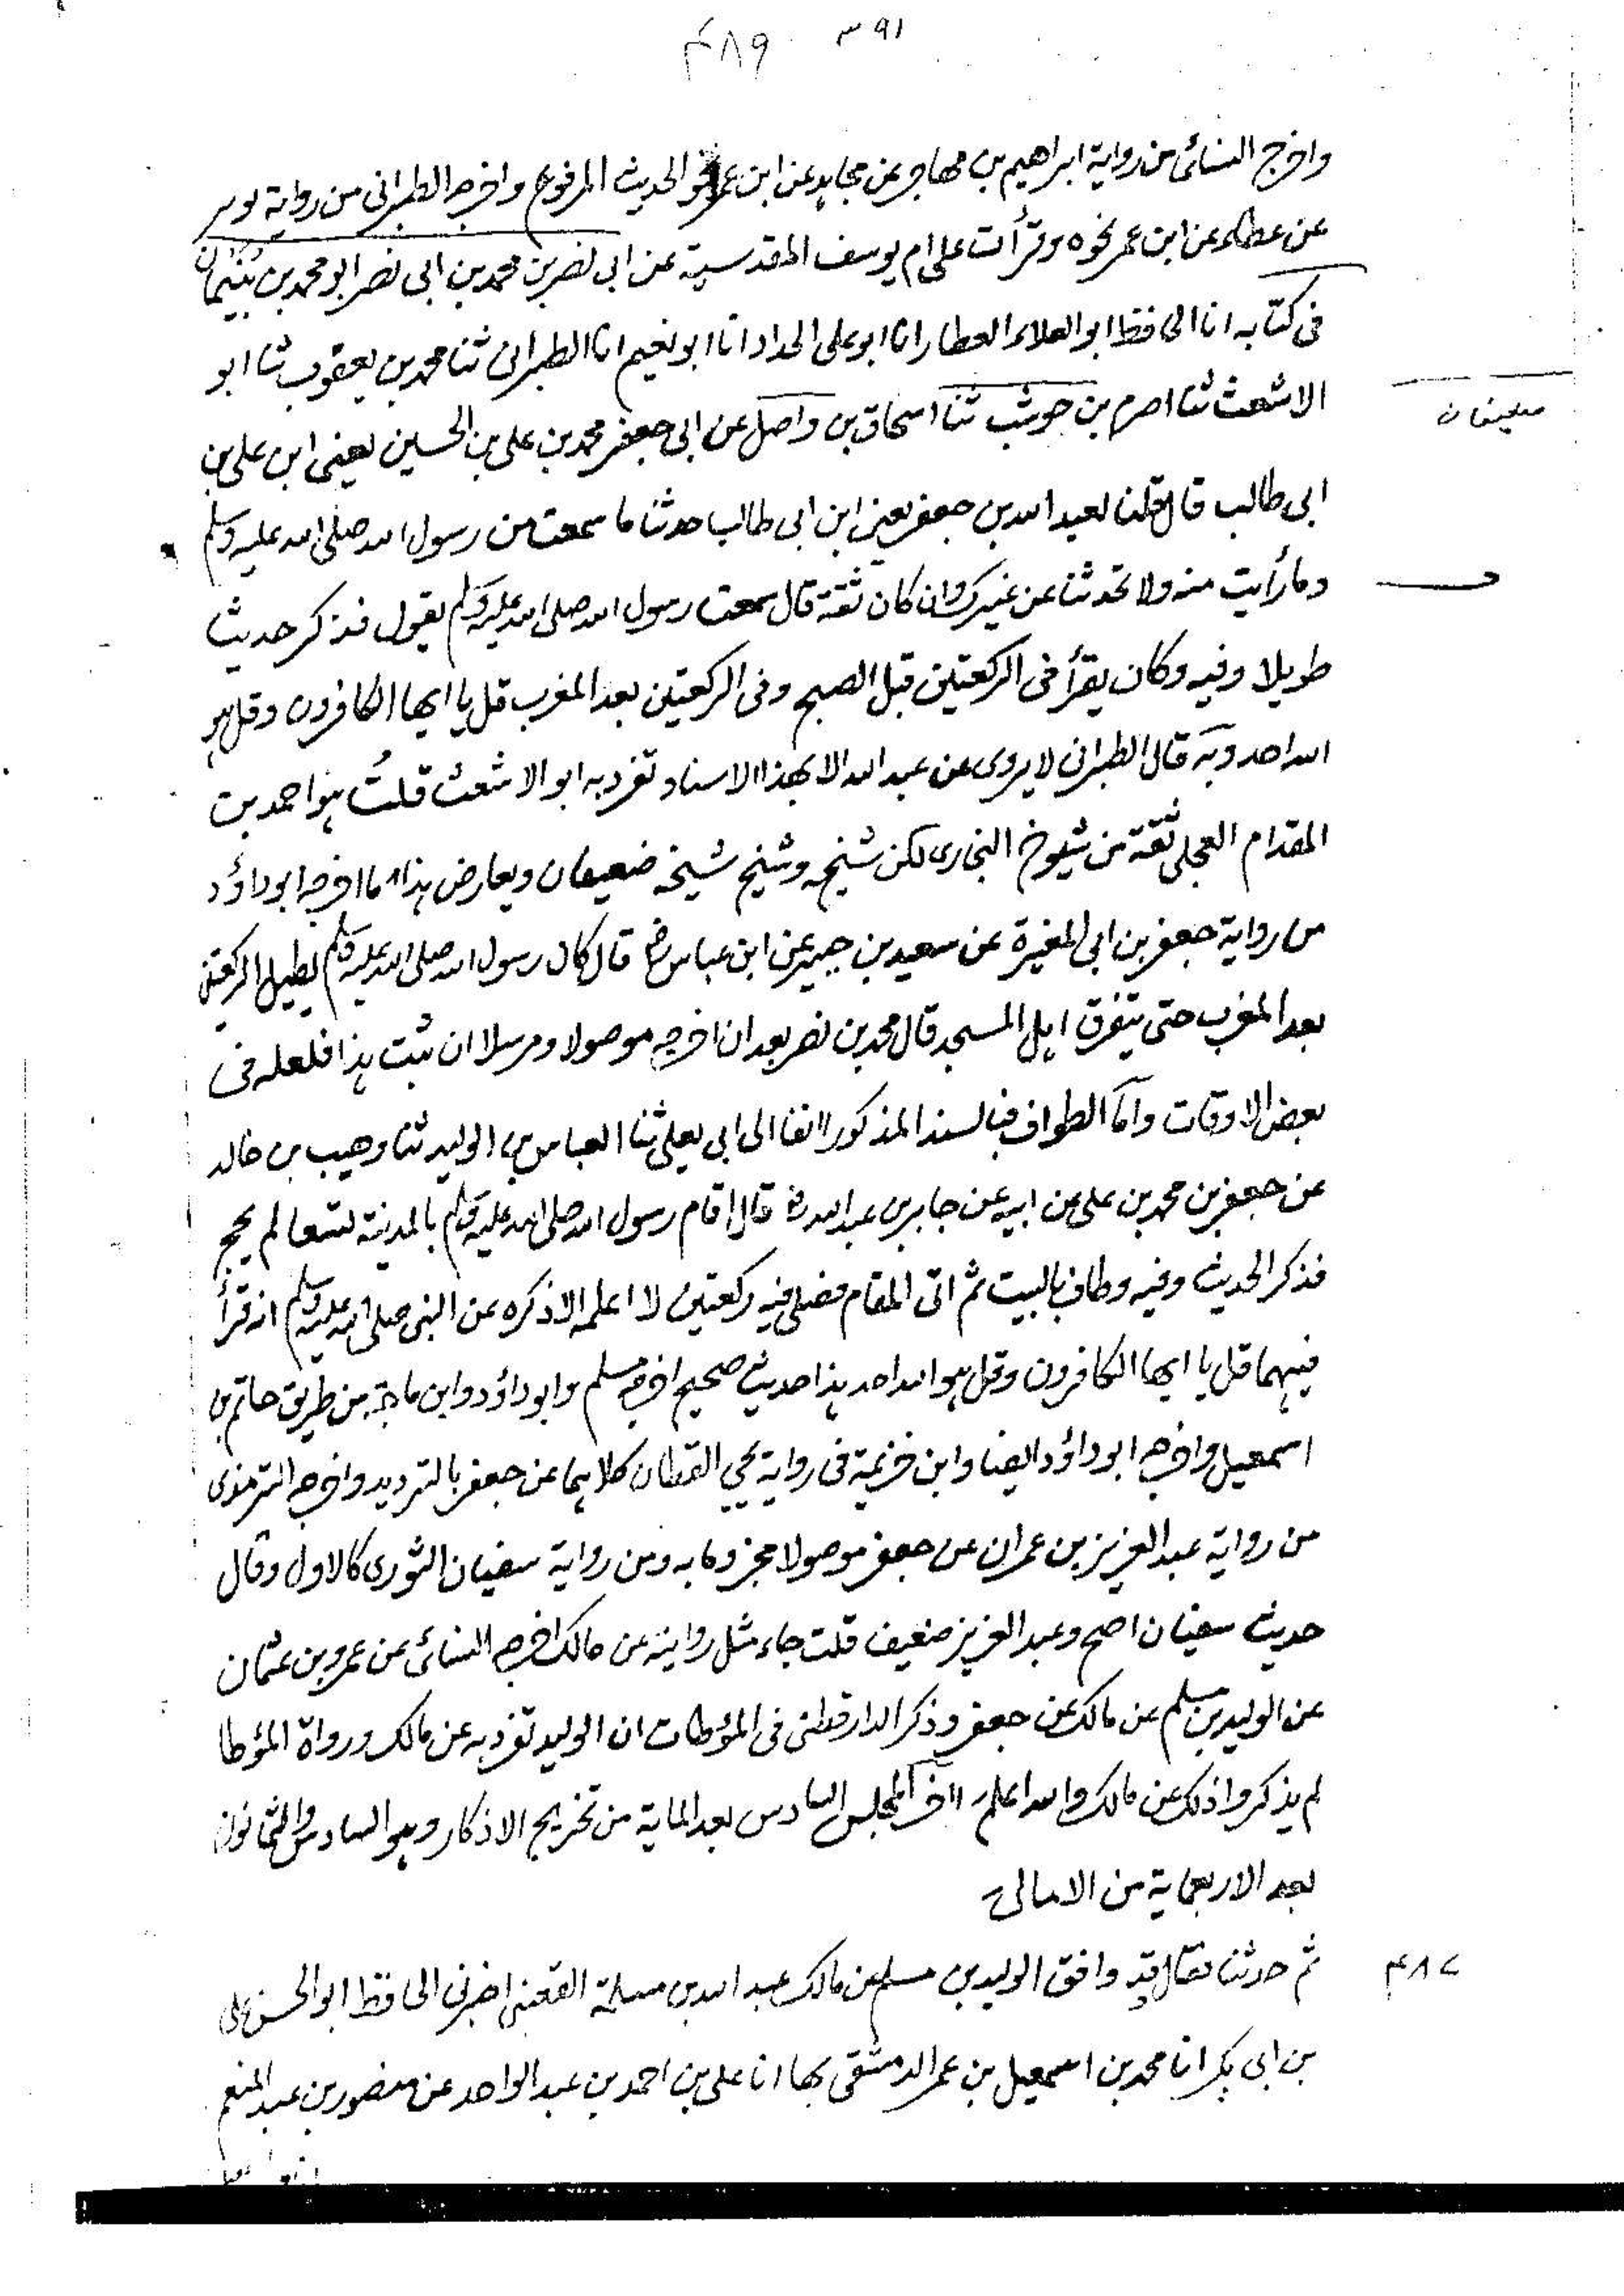 ٣٩١ ٤٨٩
واخرج النسائى من رواية ابراهيم بن مهاجر عن مجاهد عن ابن عمر نحو الحديث المرفوع واخرجه الطبرانى من رواية
عن عطاء عن ابن عمر نحوه وقرأت على ام يوسف المقدسية عن ابى نصر بن محمد بن ابى نصر ابو محمد بن بنيمان
فى كتابه انا الحافظ ابو العلاء العطار انا ابو على الحداد انا ابو نعيم انا الطبرانى ثنا محمد بن يعقوب ثنا ابو
الاشعث ثنا اصرم بن حوشب ثنا اسحاق بن واصل عن ابى جعفر محمد بن على بن الحسين يعنى ابن على بن
ابى طالب قال قلنا لعبد الله بن جعفر يعنى ابن ابى طالب حدثنا ما سمعت من رسول الله صلى الله عليه وسلم
وما رأيت منه ولا تحدثنا عن غيرك وان كان ثقة قال سمعت رسول الله صلى الله عليه وسلم يقول فذكر حديثا
طويلا وفيه وكان يقرأ فى الركعتين قبل الصبح وفى الركعتين بعد المغرب قل يا ايها الكافرون وقل هو
الله احد وبه قال الطبرانى لا يروى عن عبد الله الا بهذا الاسناد تفرد به ابو الاشعث قلت هو احمد بن
المقدام العجلى ثقة من شيوخ البخارى لكن شيخه وشيخ شيخه ضعيفان ويعارض هذا ما اخرجه ابو داؤد
من رواية جعفر بن ابى المغيرة عن سعيد بن جبير عن ابن عباس رض قال كان رسول الله صلى الله عليه وسلم يطيل الركعتين
بعد المغرب حتى يتفرق اهل المسجد قال محمد بن نصر بعد ان اخرجه موصولا ومرسلا ان ثبت هذا فلعله فى
بعض الاوقات واما الطواف فبالسند المذكور انفا الى ابى يعلى ثنا العباس بن الوليد ثنا وهيب بن خالد
عن جعفر بن محمد بن على عن ابيه عن جابر بن عبد الله رض قال اقام رسول الله صلى الله عليه وسلم بالمدينة تسعا لم يحج
فذكر الحديث وفيه وطاف بالبيت ثم اتى المقام فصلى فيه ركعتين لا اعلمه الا ذكره عن النبى صلى الله عليه وسلم انه قرأ
فيهما قل يا ايها الكافرون وقل هو الله احد هذا حديث صحيح اخرجه مسلم وابو داؤد وابن ماجة من طريق حاتم بن
اسمعيل واخرجه ابو داؤد ايضا وابن خزيمة فى رواية يحيى القطان كلاهما عن جعفر بالترديد واخرجه الترمذى
من رواية عبد العزيز بن عمران عن جعفر موصولا مجزوما به ومن رواية سفيان الثورى كالاول وقال
حديث سفيان اصح وعبد العزيز ضعيف قلت جاء مثل روايته عن مالك اخرجه النسائى عن عمرو بن عثمان
عن الوليد بن مسلم عن مالك عن جعفر وذكر الدارقطنى فى المؤطات ان الوليد تفرد به عن مالك ورواة المؤطا
لم يذكروا ذلك عن مالك والله اعلم آخر المجلس السادس بعد الماية من تخريج الاذكار وهو السادس والثمانون
بعد الاربعماية من الامالى
٤٨٧ ثم حدثنا فقال وقد وافق الوليد بن مسلم عن مالك عبد الله بن مسلمة القعنبى اخبرنى الحافظ ابو الحسن على
بن ابى بكر انا محمد بن اسمعيل بن عمر الدمشقى بها انا على بن احمد بن عبد الواحد عن منصور بن عبد المنعم